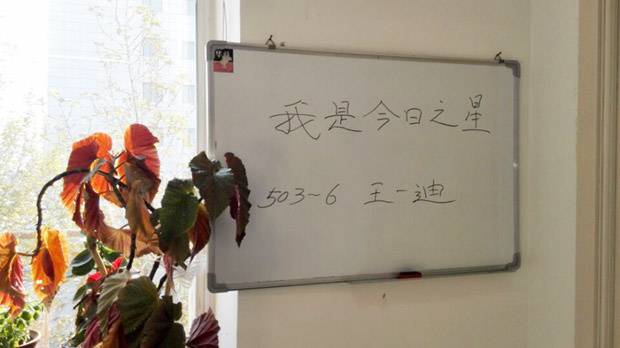 我是今日之星
503-6 王一迪